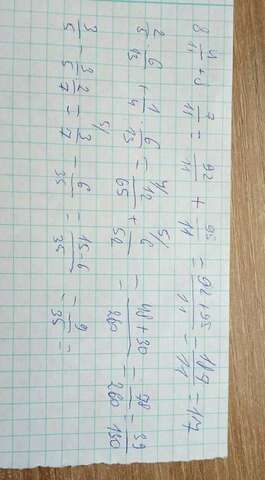 8 4/11 + 8 7/11 = 92/11 + 95/11 = 92+95/11 = 187/11 = 17
2/5 · 6/13 + 1/4 · 6/13 = 4/ 12/65 + 5/ 6/52 = 48+30/260 = 78/260 = 39/130
3/5 - 3/5 · 2/7 = 5/ 3/7 - 6/35 = 15-6/35 = 9/35 =